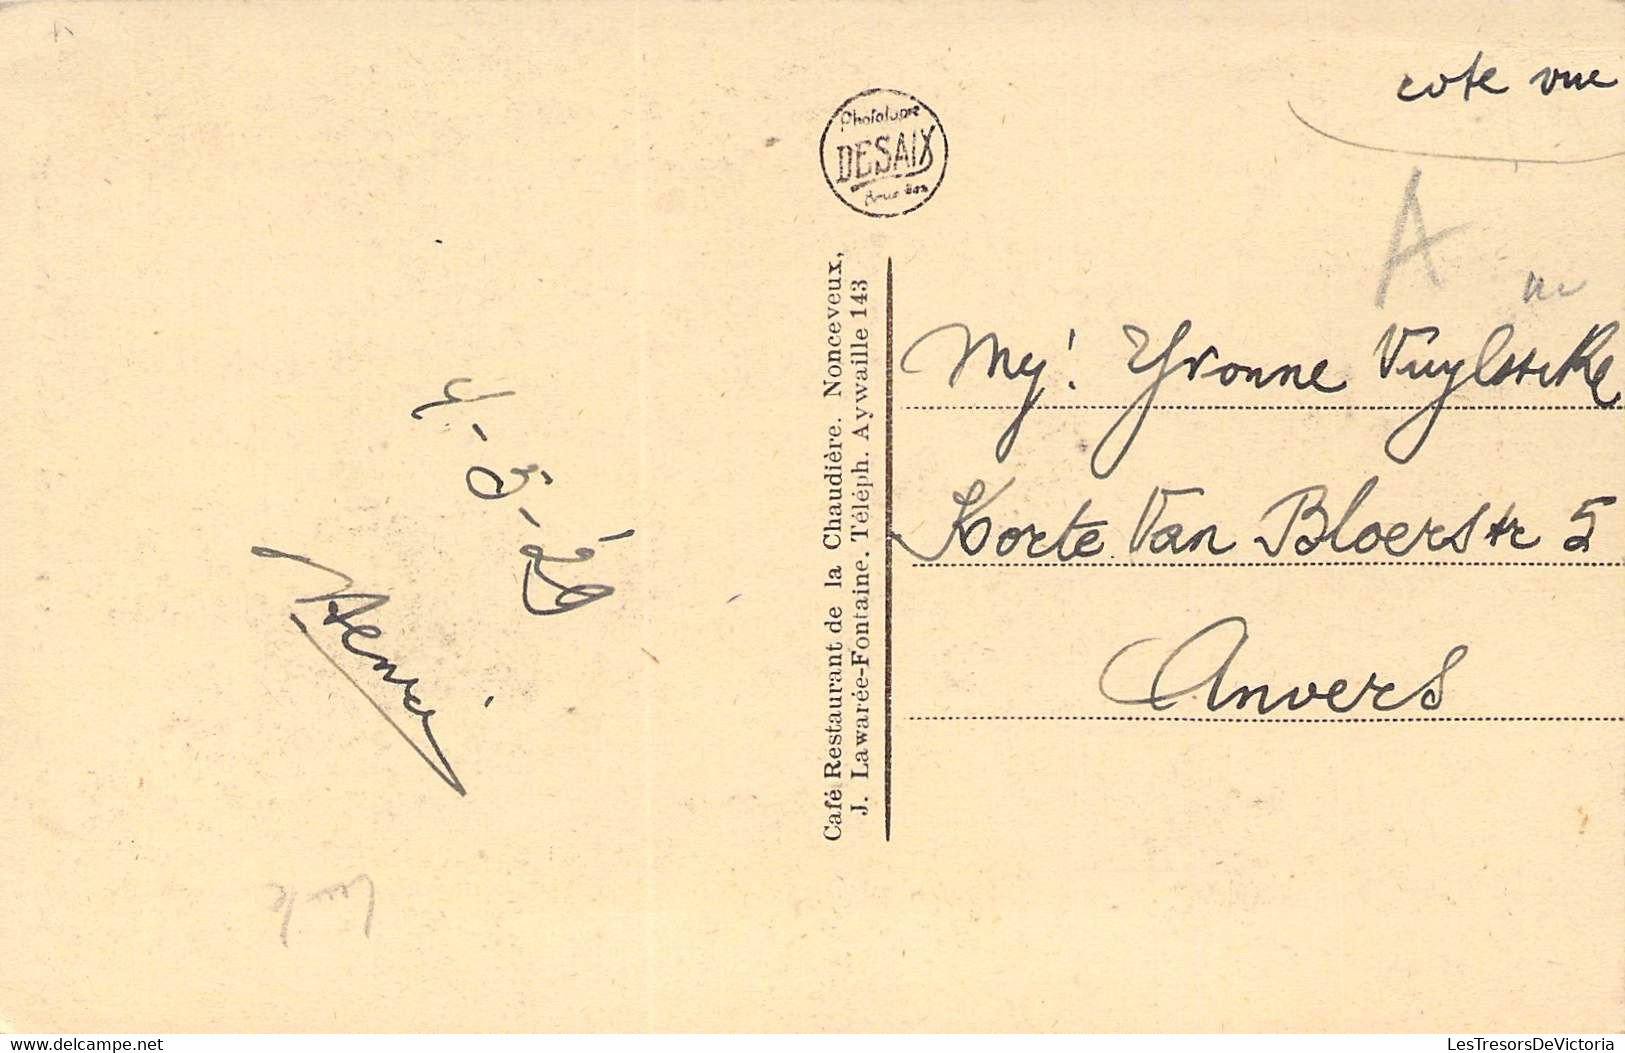 cote vue
Phototypie
DESAIX
Bruxelles
A
Mej! Yvonne Vuylsteke
Korte Van Bloerstr 5
Anvers
Café Restaurant de la Chaudière. Nonceveux,
J. Lawarée-Fontaine. Téléph. Aywaille 143
Henri
LesTresorsDeVictoria
www.delcampe.net